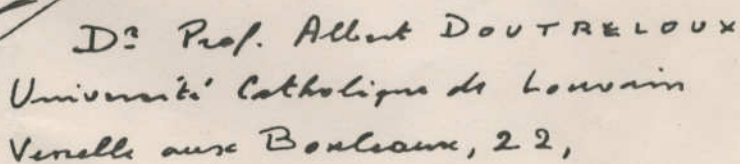 Dr Prof. Albert DOUTRELOUX
Université Catholique de Louvain
Venelle aux Bouleaux, 22,